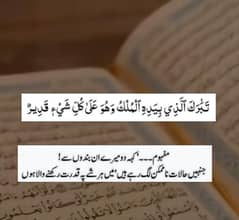 تَبٰرَكَ الَّذِي بِيَدِهِ الْمُلْكُ وَهُوَ عَلٰى كُلِّ شَيْءٍ قَدِيرٌ
مفہوم۔۔۔’کہہ دو میرے ان بندوں سے!
جنہیں حالات ناممکن لگ رہے ہیں’میں ہر شے پہ قدرت رکھنے والا ہوں